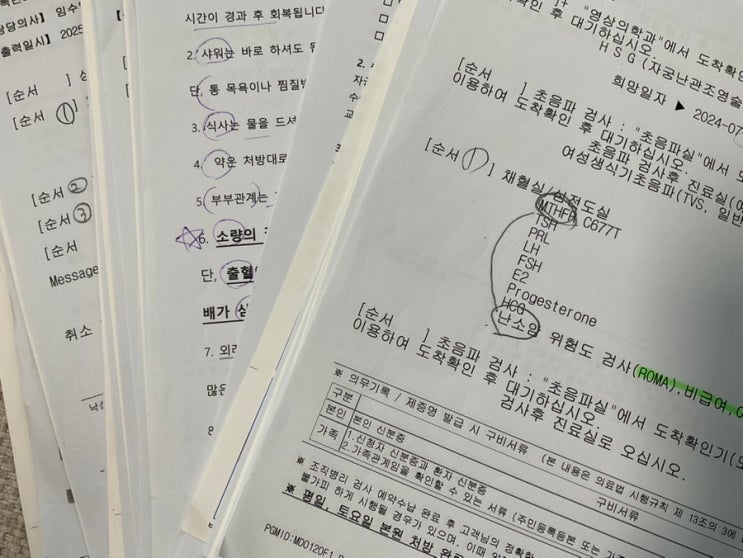 당의사] 임수
출력일시] 2025
[순서 ] 상
[순서 ① ]
[순서 ②
[순서 ③
[순서
Message
취소
시간이 경과 후 회복됩니다
2. 샤워는 바로 하셔도 됩
단, 통 목욕이나 찜질방
3. 식사는 물을 드셔
4. 약은 처방대로
5. 부부관계는
☆6. 소량의
단, 출혈
배가
7. 외래
많은
"영상의학과"에서 도착확인
후 대기하십시오.
HSG(자궁난관조영술
희망일자 ▶ 2024-07
[순서 ] 초음파 검사 : "초음파실"에서 도
이용하여 도착확인 후 대기하십시오.
초음파 검사후 진료실(
여성생식기초음파(TVS, 일반
[순서 ① ] 채혈실/심전도실
MTHFR C677T
TSH
PRL
LH
FSH
E2
Progesterone
HCG
난소암 위험도 검사(ROMA),비급여,
[순서 ] 초음파 검사 : "초음파실"에서 도착확인기(도
이용하여 도착확인 후 대기하십시오.
검사후 진료실로 오십시오.
※ 의무기록 / 제증명 발급 시 구비서류 (본 내용은 의료법 시행규칙 제 13조의 3에
구분 구비서류
본인 본인 신분증
가족 1.신청자 신분증과 환자 신분증
2.가족관계임을 확인할 수 있는 서류 (주민등록등본 또는 가
※ 조직병리 검사 예약수납 완료 후 고객님의 정확한
불가피 하게 시행될 경우가 있으며, 이때
※ 평일, 토요일 본원 처방
PGMID:MD0120F1